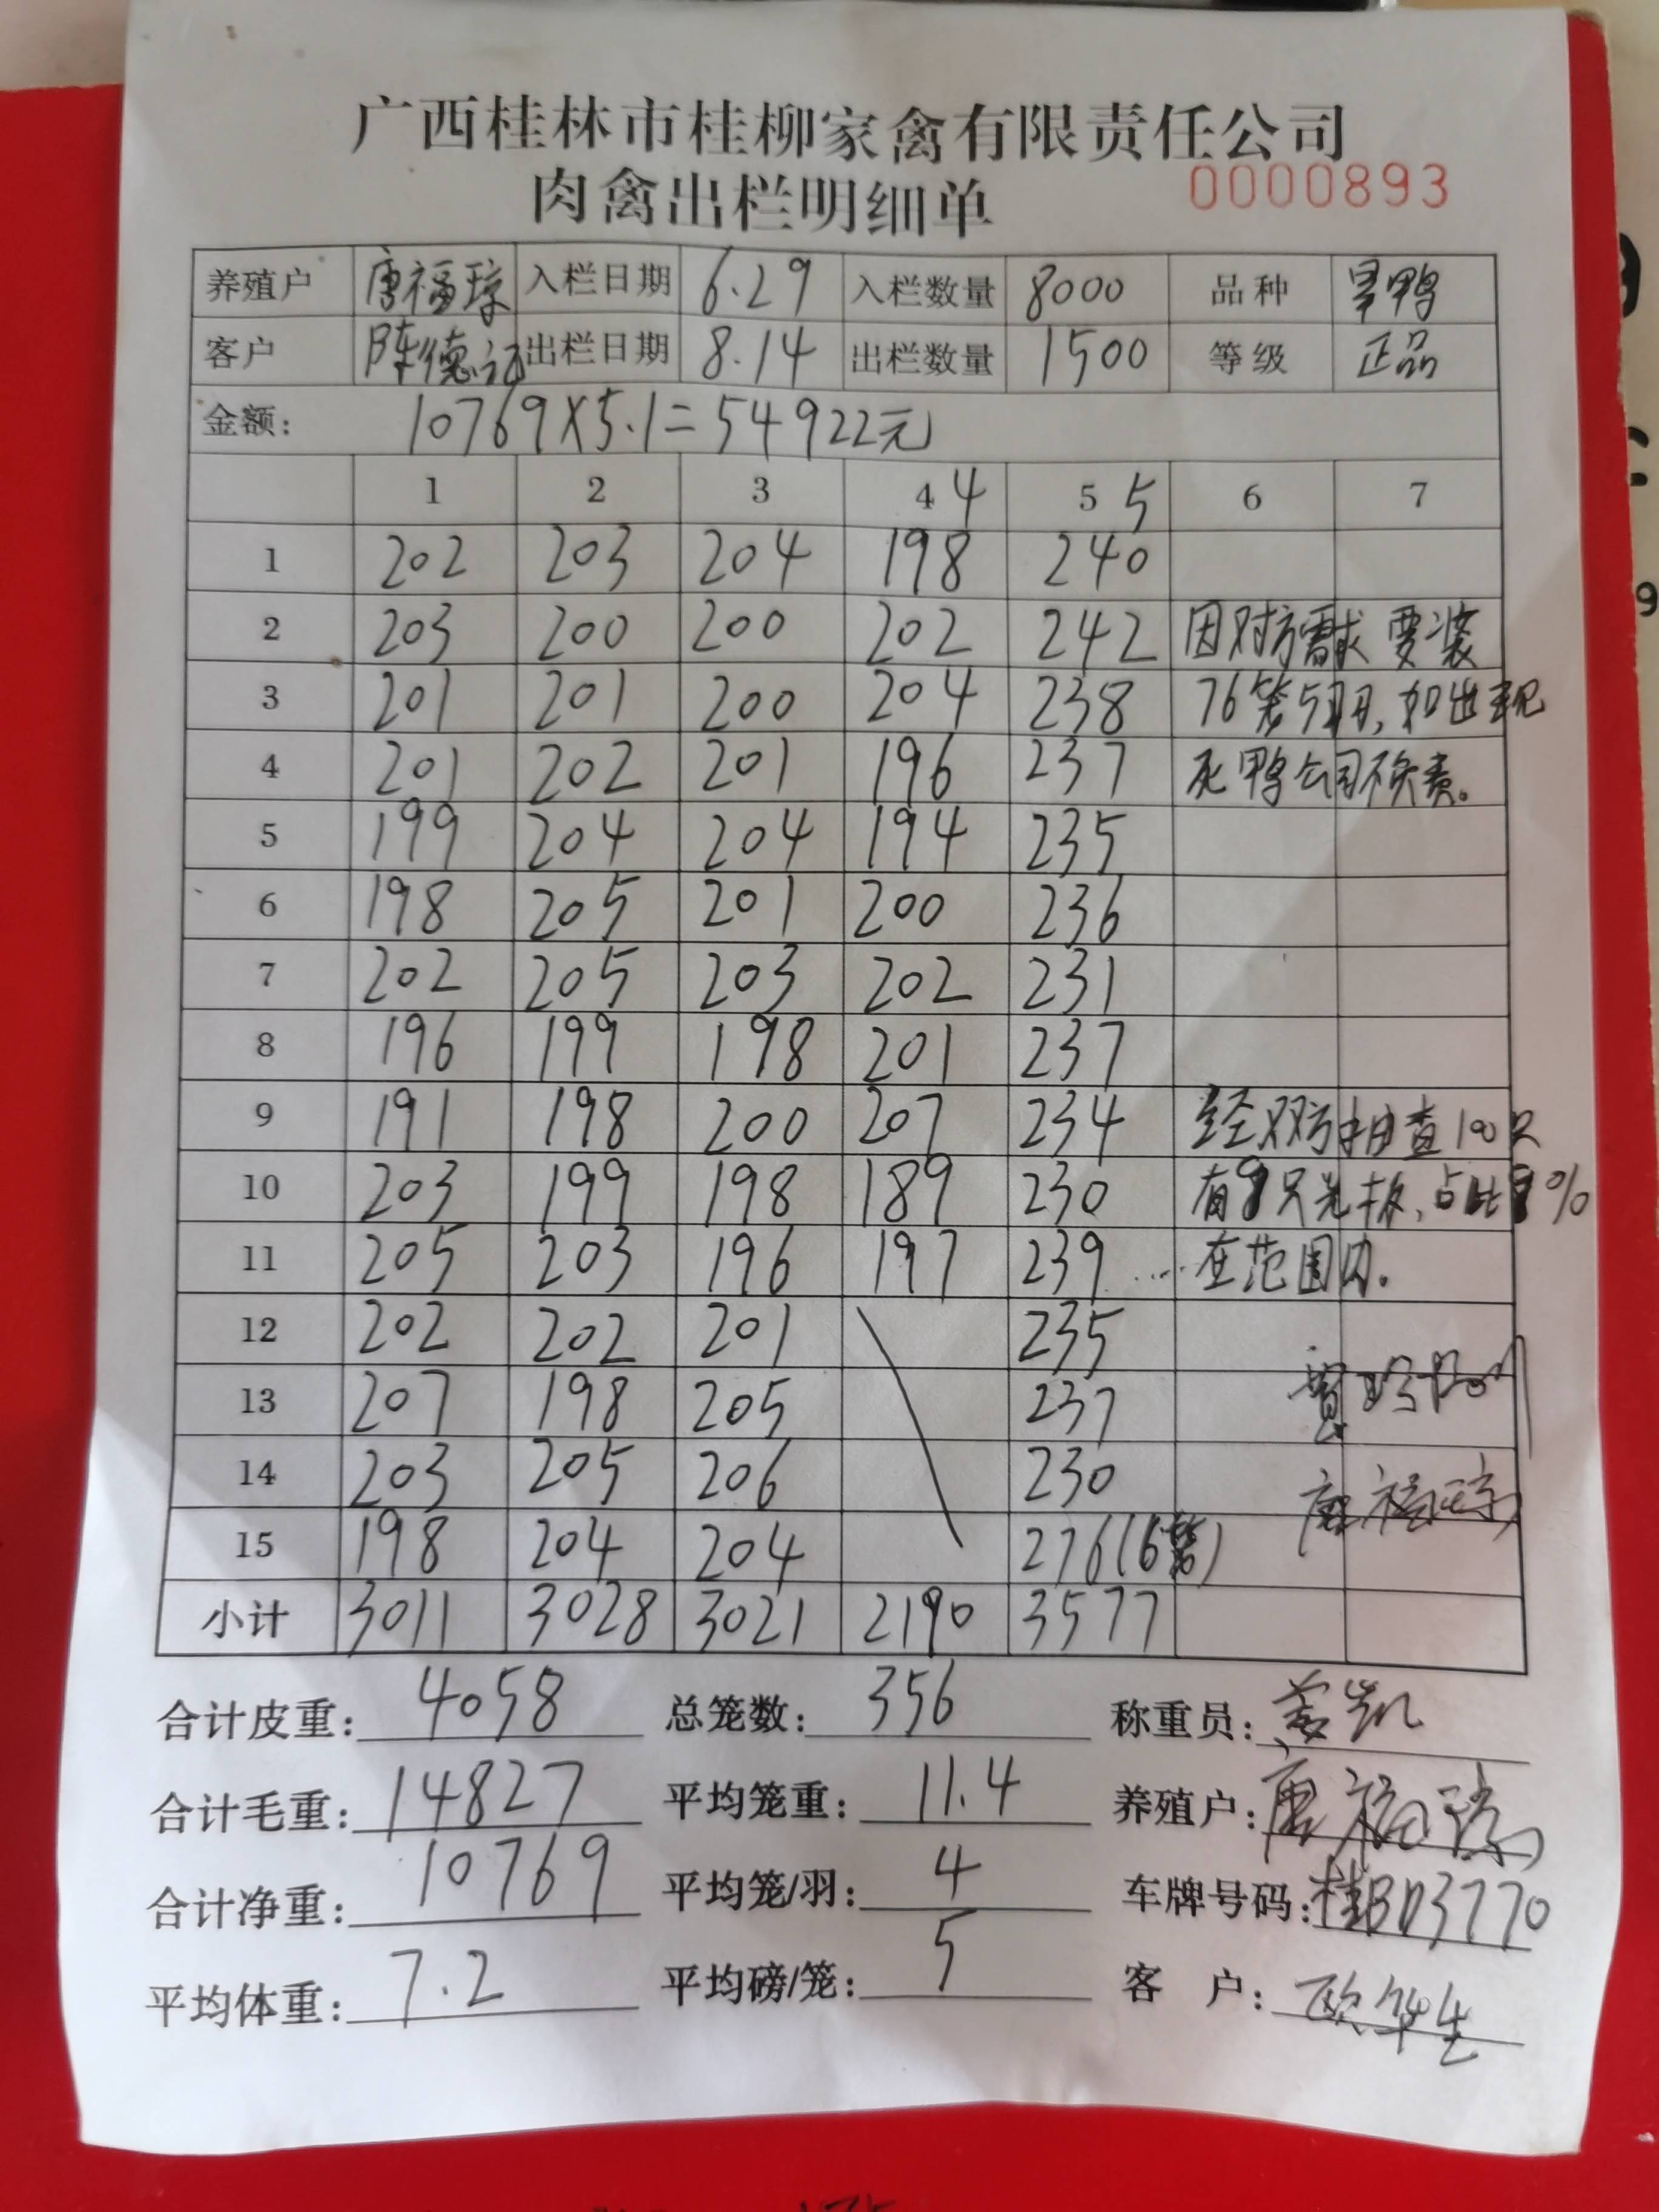 广西桂林市桂柳家禽有限责任公司
肉禽出栏明细单 0000893
养殖户 唐福琼 入栏日期 6.29 入栏数量 8000 品种 旱鸭
客户 陈德记 出栏日期 8.14 出栏数量 1500 等级 正品
金额: 10769X5.1=54922元
1 2 3 4 4 5 5 6 7
1 202 203 204 198 240
2 203 200 200 202 242 因对方需求 要装
3 201 201 200 204 238 76笼5羽,如出现
4 201 202 201 196 237 死鸭公司不负责。
5 199 204 204 194 235
6 198 205 201 200 236
7 202 205 203 202 231
8 196 199 198 201 237
9 191 198 200 207 234 经双方抽查100只
10 203 199 198 189 230 有9只光板,占比9%
11 205 203 196 197 239 ....在范围内。
12 202 202 201 235
13 207 198 205 237
14 203 205 206 230 唐福琼
15 198 204 204 276(6笼)
小计 3011 3028 3021 2190 3577
合计皮重: 4058 总笼数: 356 称重员:
合计毛重: 14827 平均笼重: 11.4 养殖户: 唐福琼
合计净重: 10769 平均笼/羽: 4 车牌号码: 桂BD3770
平均体重: 7.2 平均磅/笼: 5 客 户: 欧华生